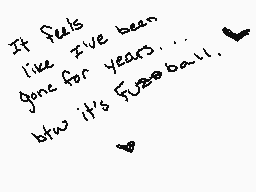 It feels
like I've been
gone for years...
btw it's Fuzzball.